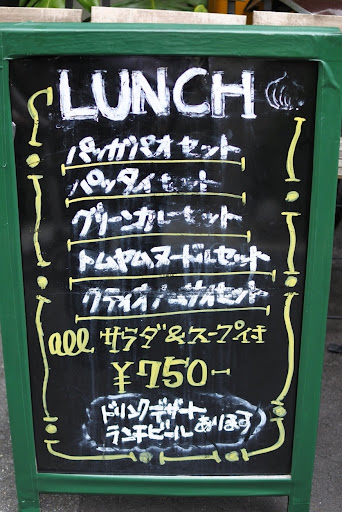 LUNCH
パッガパオセット
パッタイセット
グリーンカレーセット
トムヤムヌードルセット
クティオナームサイセット
all サラダ&スープ付き
¥750-
ドリンクデザート
ランチビール あります